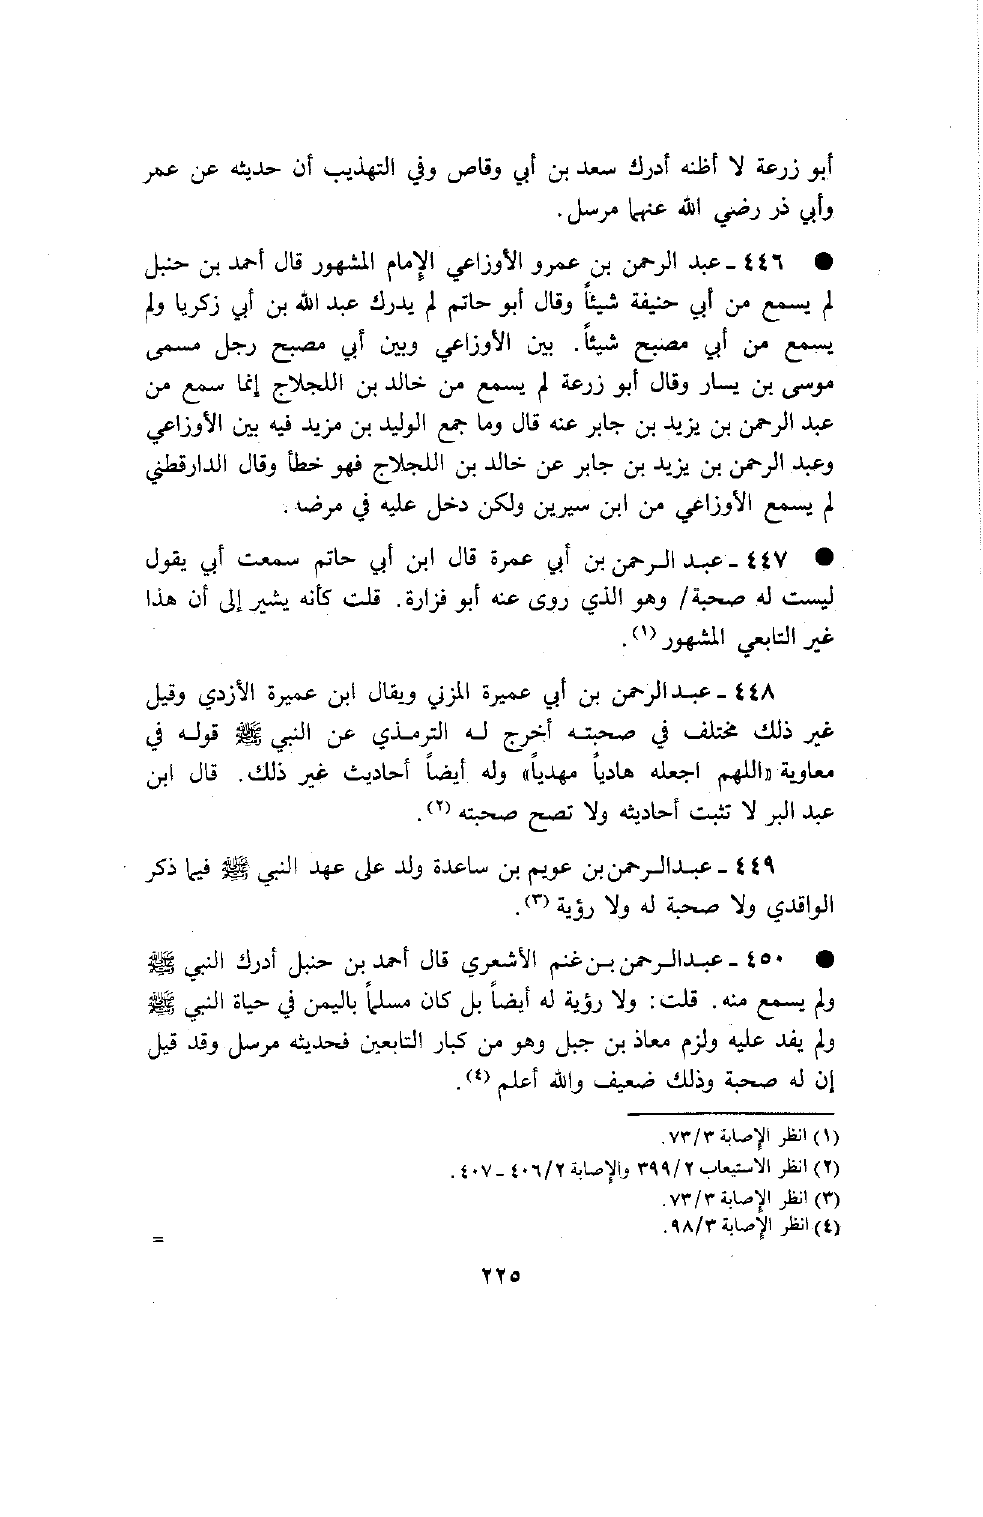 أبو زرعة لا أظنه أدرك سعد بن أبي وقاص وفي التهذيب أن حديثه عن عمر
وأبي ذر رضي الله عنهما مرسل.
● ٤٤٦ ـ عبد الرحمن بن عمرو الأوزاعي الإمام المشهور قال أحمد بن حنبل
لم يسمع من أبي حنيفة شيئاً وقال أبو حاتم لم يدرك عبد الله بن أبي زكريا ولم
يسمع من أبي مصبح شيئاً. بين الأوزاعي وبين أبي مصبح رجل مسمى
موسى بن يسار وقال أبو زرعة لم يسمع من خالد بن اللجلاج إنما سمع من
عبد الرحمن بن يزيد بن جابر عنه قال وما جمع الوليد بن مزيد فيه بين الأوزاعي
وعبد الرحمن بن يزيد بن جابر عن خالد بن اللجلاج فهو خطأ وقال الدارقطني
لم يسمع الأوزاعي من ابن سيرين ولكن دخل عليه في مرضه.
● ٤٤٧ ـ عبد الرحمن بن أبي عمرة قال ابن أبي حاتم سمعت أبي يقول
ليست له صحبة/ وهو الذي روى عنه أبو فزارة. قلت كأنه يشير إلى أن هذا
غير التابعي المشهور (١).
٤٤٨ ـ عبد الرحمن بن أبي عميرة المزني ويقال ابن عميرة الأزدي وقيل
غير ذلك مختلف في صحبته أخرج له الترمذي عن النبي ﷺ قوله في
معاوية «اللهم اجعله هادياً مهدياً» وله أيضاً أحاديث غير ذلك. قال ابن
عبد البر لا تثبت أحاديثه ولا تصح صحبته (٢).
٤٤٩ ـ عبد الرحمن بن عويم بن ساعدة ولد على عهد النبي ﷺ فيما ذكر
الواقدي ولا صحبة له ولا رؤية (٣).
● ٤٥٠ ـ عبد الرحمن بن غنم الأشعري قال أحمد بن حنبل أدرك النبي ﷺ
ولم يسمع منه. قلت: ولا رؤية له أيضاً بل كان مسلماً باليمن في حياة النبي ﷺ
ولم يفد عليه ولزم معاذ بن جبل وهو من كبار التابعين فحديثه مرسل وقد قيل
إن له صحبة وذلك ضعيف والله أعلم (٤).
(١) انظر الإصابة ٧٣/٣.
(٢) انظر الاستيعاب ٣٩٩/٢ والإصابة ٤٠٦/٢ ـ ٤٠٧.
(٣) انظر الإصابة ٧٣/٣.
(٤) انظر الإصابة ٩٨/٣.
=
٢٢٥